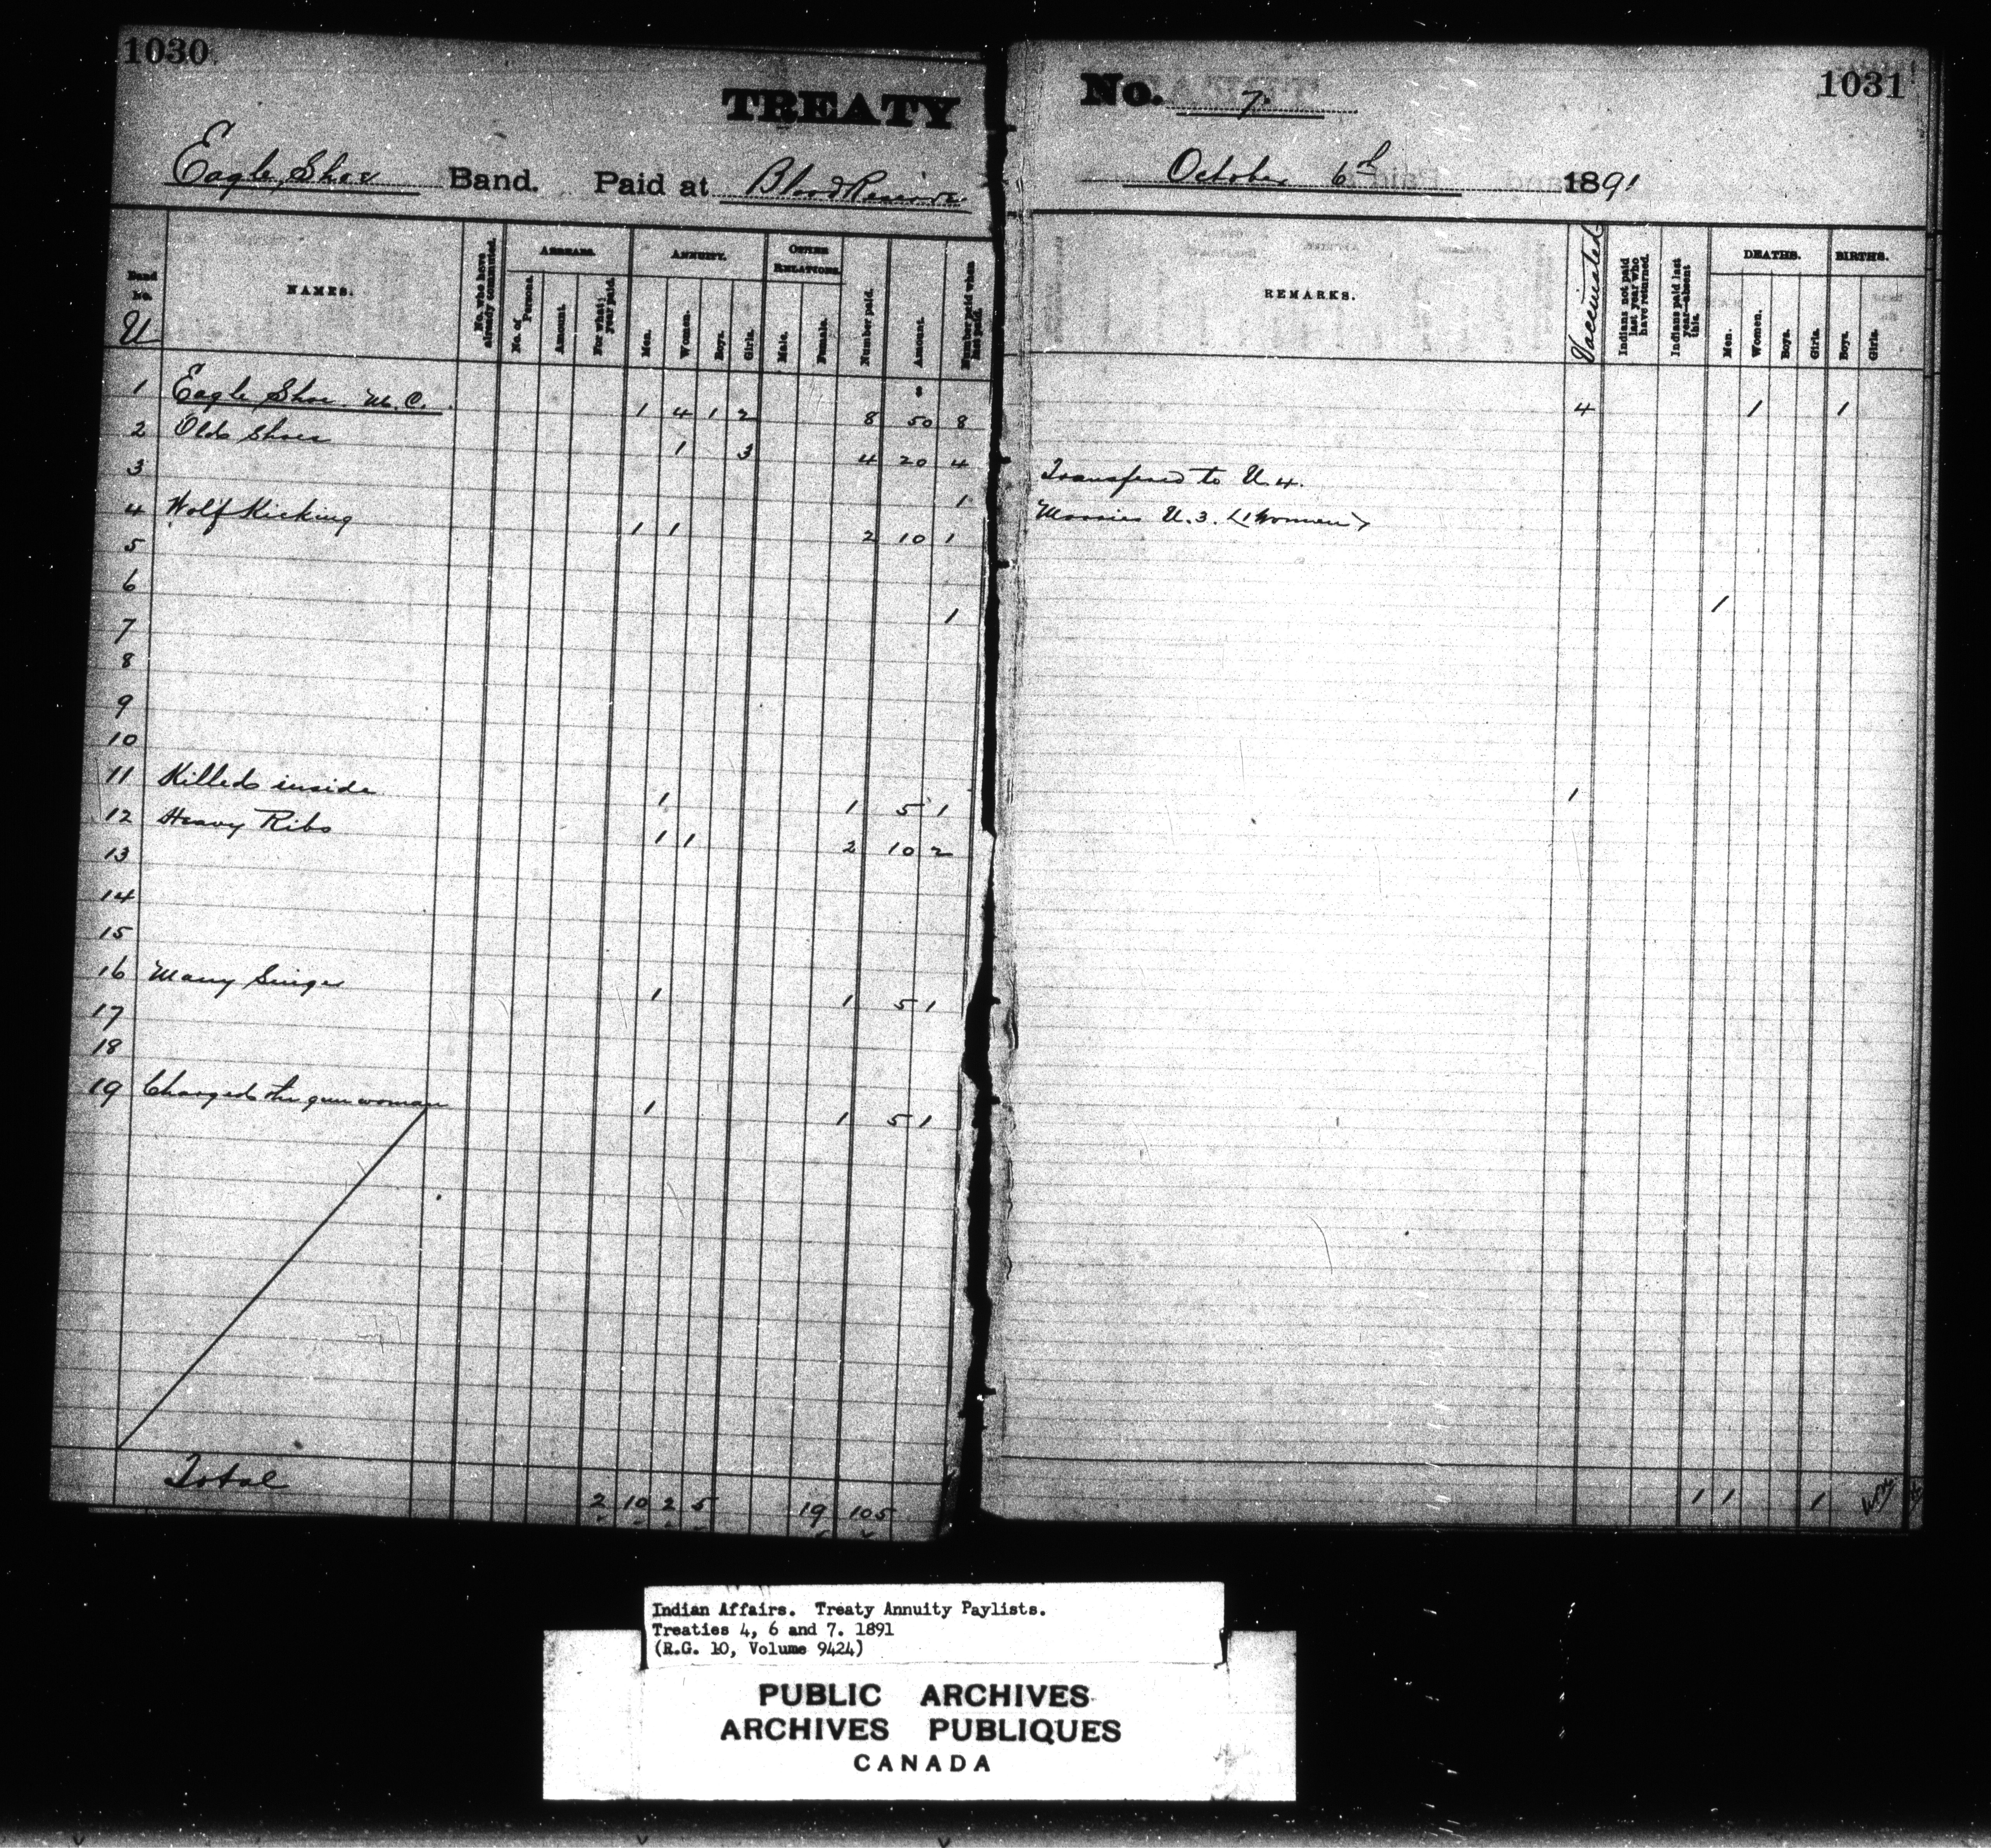 1030
TREATY
Eagle Shoe Band. Paid at Blood Reserve
Band No. U
NAMES.
No. who have already commuted.
ARREARS.
No. of Persons.
Amount.
For what year paid.
ANNUITY.
Men.
Women.
Boys.
Girls.
OTHER RELATIONS.
Male.
Female.
Number paid.
Amount.
Number paid when last paid.
1 Eagle Shoe M.C. 1 4 1 2 8 50 8
2 Old Shoes 1 3 4 20 4
3 1
4 Wolf Kicking 1 1 2 10 1
5
6 1
7
8
9
10
11 Killed inside 1 1 5 1
12 Heavy Ribs 1 1 2 10 2
13
14
15
16 Many Singer 1 1 5 1
17
18
19 Charged the gun woman 1 1 5 1
Total 2 10 2 5 19 105
No. 7.
1031
October 6th 1891
REMARKS.
Vaccinated
Indians not paid last year who have returned.
Indians paid last year—absent this.
DEATHS.
Men.
Women.
Boys.
Girls.
BIRTHS.
Boys.
Girls.
4 1 1
Transfered to U.4.
Marries U.3. (1 Women)
1
1
1 1 1
Indian Affairs. Treaty Annuity Paylists.
Treaties 4, 6 and 7. 1891
(R.G. 10, Volume 9424)
PUBLIC ARCHIVES
ARCHIVES PUBLIQUES
CANADA